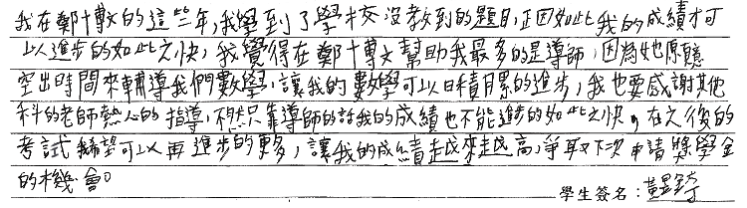 我在鄭博文的這些年,我學到了學校沒教到的題目,正因如此我的成績才可
以進步的如此之快,我覺得在鄭博文幫助我最多的是導師,因為他願意
空出時間來輔導我們數學,讓我的數學可以日積月累的進步,我也要感謝其他
科的老師熱心的指導,不然只靠導師的話我的成績也不能進步的如此之快。在之後的
考試希望可以再進步的更多,讓我的成績越來越高,爭取下次申請獎學金
的機會。
學生簽名:黃